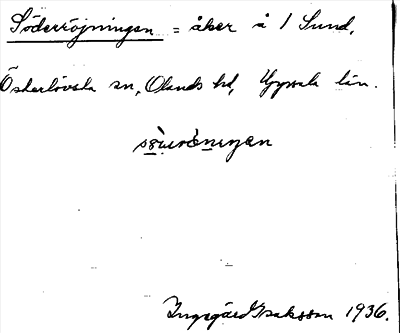 Söderröjningen = åker å 1 Sund,
Österlövsta sn, Olands hd, Uppsala län.
Ingegärd Isaksson 1936.